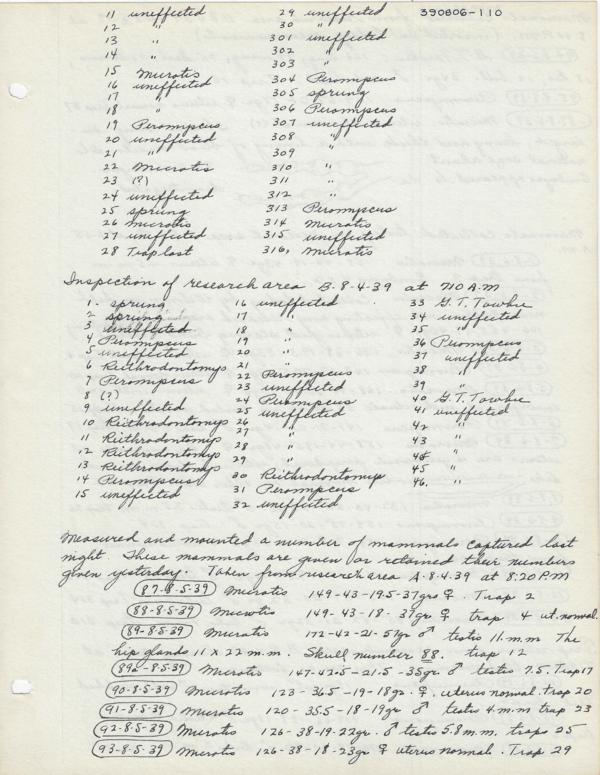 390806-110
11 uneffected
12 "
13 "
14 "
15 Microtis
16 uneffected
17 "
18 "
19 Peromyscus
20 uneffected
21 "
22 Microtis
23 (?)
24 uneffected
25 sprung
26 Microtis
27 uneffected
28 Trap lost
29 uneffected
30 "
301 uneffected
302 "
303 "
304 Peromyscus
305 sprung
306 Peromyscus
307 uneffected
308 "
309 "
310 "
311 "
312 "
313 Peromyscus
314 Microtis
315 uneffected
316, Microtis
Inspection of research area B. 8-4-39 at 7:10 A.M
1. sprung
2 sprung
3 uneffected
4 Peromyscus
5 uneffected
6 Reithrodontomys
7 Peromyscus
8 (?)
9 uneffected
10 Reithrodontomys
11 Reithrodontomys
12 Reithrodontomys
13 Reithrodontomys
14 Peromyscus
15 uneffected
16 uneffected
17 "
18 "
19 "
20 "
21 "
22 Peromyscus
23 uneffected
24 Peromyscus
25 uneffected
26 "
27 "
28 "
29 "
30 Reithrodontomys
31 Peromyscus
32 uneffected
33 G.T. Towhee
34 uneffected
35 "
36 Peromyscus
37 uneffected
38 "
39 "
40 G.T. Towhee
41 uneffected
42 "
43 "
44 "
45 "
46. "
Measured and mounted a number of mammals captured last
night. These mammals are given or retained their numbers
given yesterday. Taken from research area A. 8.4.39 at 8:20 P.M
87-8-5-39 Microtis 149-43-19.5-37gr ♀. Trap 2
88-8-5-39 Microtis 149-43-18-37gr ♀ trap 4 ut. normal.
89-8-5-39 Microtis 172-42-21-57gr ♂ testis 11. m.m The
hip glands 11 x 22 m.m. Skull number 88. trap 12
89a-8-5-39 Microtis 147-42.5-21.5-35gr. ♂ testis 7.5. Trap 17
90-8-5-39 Microtis 123-36.5-19-18gr. ♀. uterus normal. trap 20
91-8-5-39 Microtis 120-35.5-18-19gr ♂ testis 4. m.m trap 23
92-8-5-39 Microtis 126-38-19-22gr. ♂ testis 5.8 m.m. trap 25
93-8-5-39 Microtis 126-38-18-23gr ♀ uterus normal. Trap 29